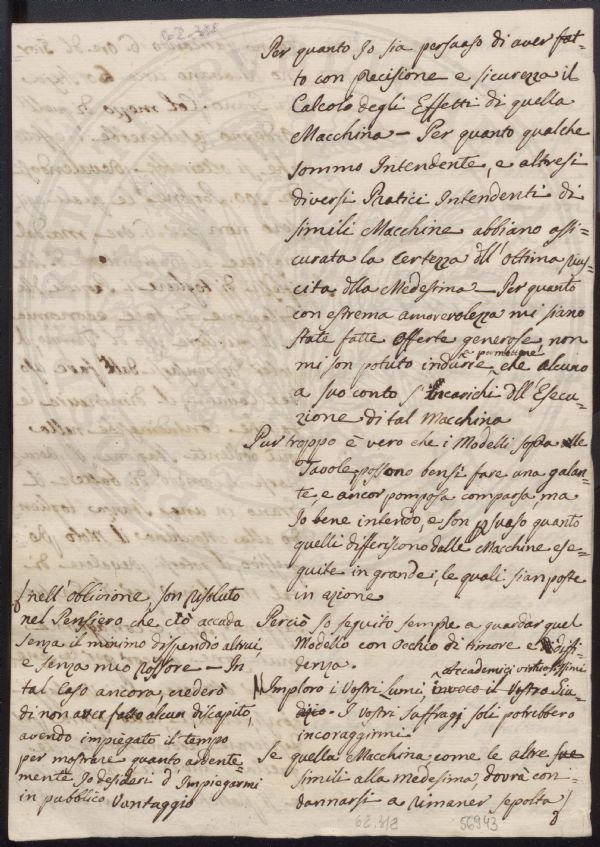 Per quanto Io sia persuaso di aver fat-
to con precisione e sicurezza il
Calcolo degli Effetti di quella
Macchina — Per quanto qualche
sommo Intendente, e altresì
diversi Pratici Intendenti di
simili Macchine abbiano assi=
curata la Certezza dll' ottima rius=
cita dlla Medesima — Per quanto
con estrema amorevolezza mi siano
state fatte offerte generose non
mi son potuto indurre a permettere che alcuno
a suo conto s'Incarichi dll' Esecu-
zione di tal Macchina
Pur troppo è vero che i Modelli sopra le
Tavole possono bensì fare una galan-
te, e ancor pomposa comparsa, ma
Io bene intendo, e son psuaso quanto
quelli differiscono dalle Macchine ese-
guite in grande, le quali sian poste
in azione
Perciò Io seguito sempre a guardar quel
Modello con occhio di timore e di dif-
denza.
Imploro i Vostri lumi, Accademici virtuosissimi
invoco il Vostro Giu-
dizio. I vostri suffragj soli potrebbero
incoraggirmi.
Se quella Macchina, come le altre sue
simili alla medesima, dovrà con-
dannarsi a rimaner sepolta
nell' oblivione, son risoluto
nel Pensiero che ciò accada
senza il minimo dispendio altrui,
e senza mio rossore — In
tal Caso ancora, crederò
di non aver fatto alcun discapito,
avendo impiegato il tempo
per mostrare quanto ardente-
mente Io desideri d'Impiegarmi
in pubblico Vantaggio
62.318
56943